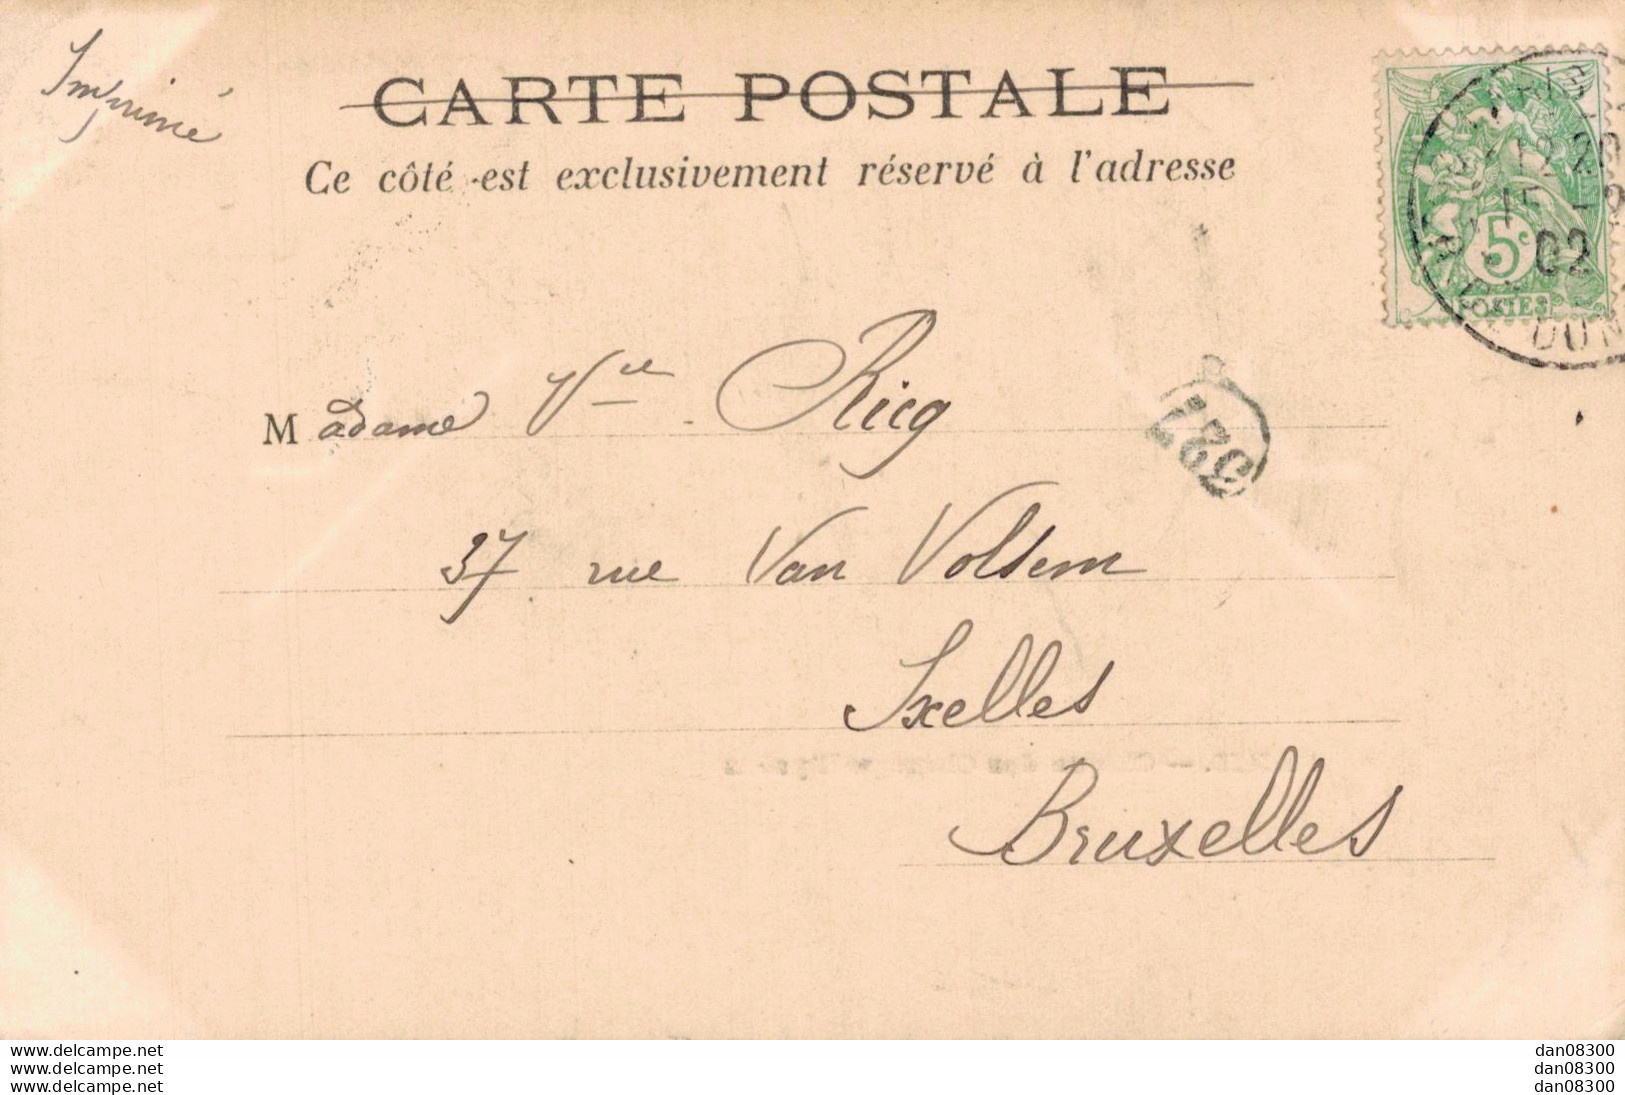 Imprimé
CARTE POSTALE
Ce côté est exclusivement réservé à l'adresse
5c
POSTES
02
Madame Vve Ricq
327
37 rue Van Volsem
Ixelles
Bruxelles
www.delcampe.net
www.delcampe.net
www.delcampe.net
dan08300
dan08300
dan08300